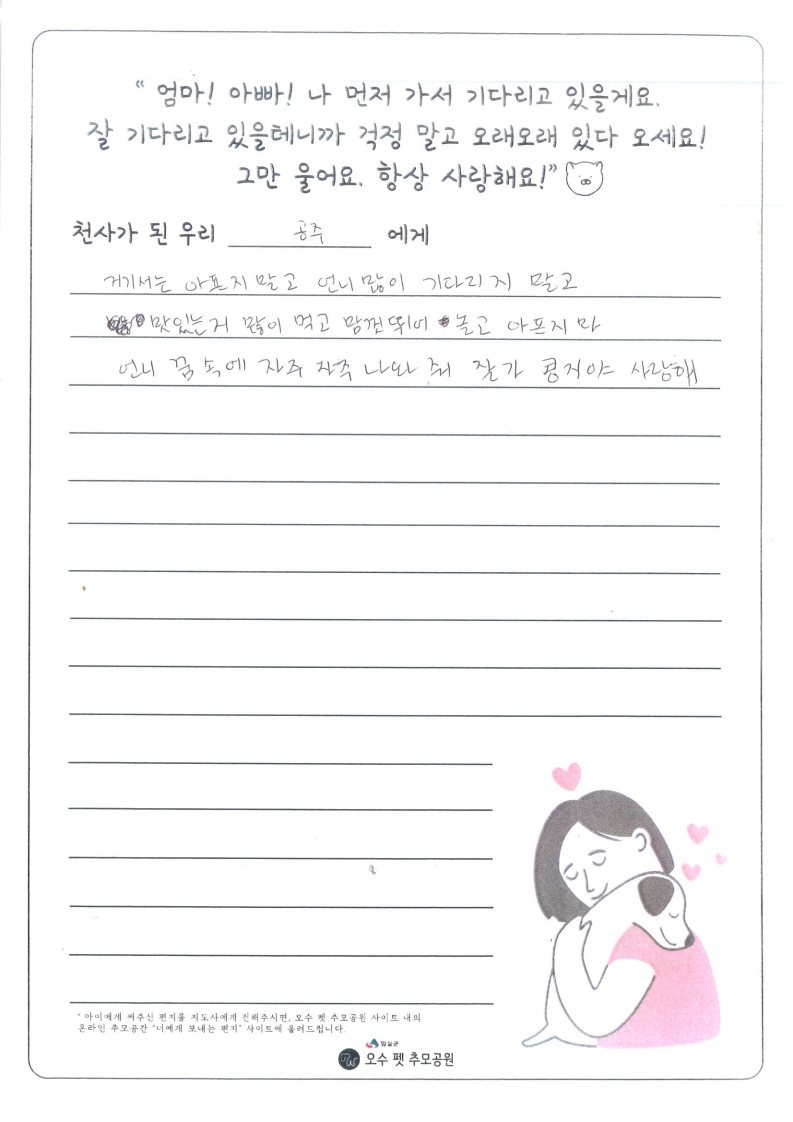 “ 엄마! 아빠! 나 먼저 가서 기다리고 있을게요.
잘 기다리고 있을테니까 걱정 말고 오래오래 있다 오세요!
그만 울어요. 항상 사랑해요!”
천사가 된 우리 공주 에게
거기서는 아프지말고 언니 많이 기다리지 말고
맛있는거 많이 먹고 맘껏 뛰어 놀고 아프지 마
언니 꿈 속에 자주 자주 나와 줘 잘가 공주야 사랑해
* 아이에게 써주신 편지를 지도사에게 전해주시면, 오수 펫 추모공원 사이트 내의
온라인 추모공간 "너에게 보내는 편지" 사이트에 올려드립니다.
임실군
오수 펫 추모공원